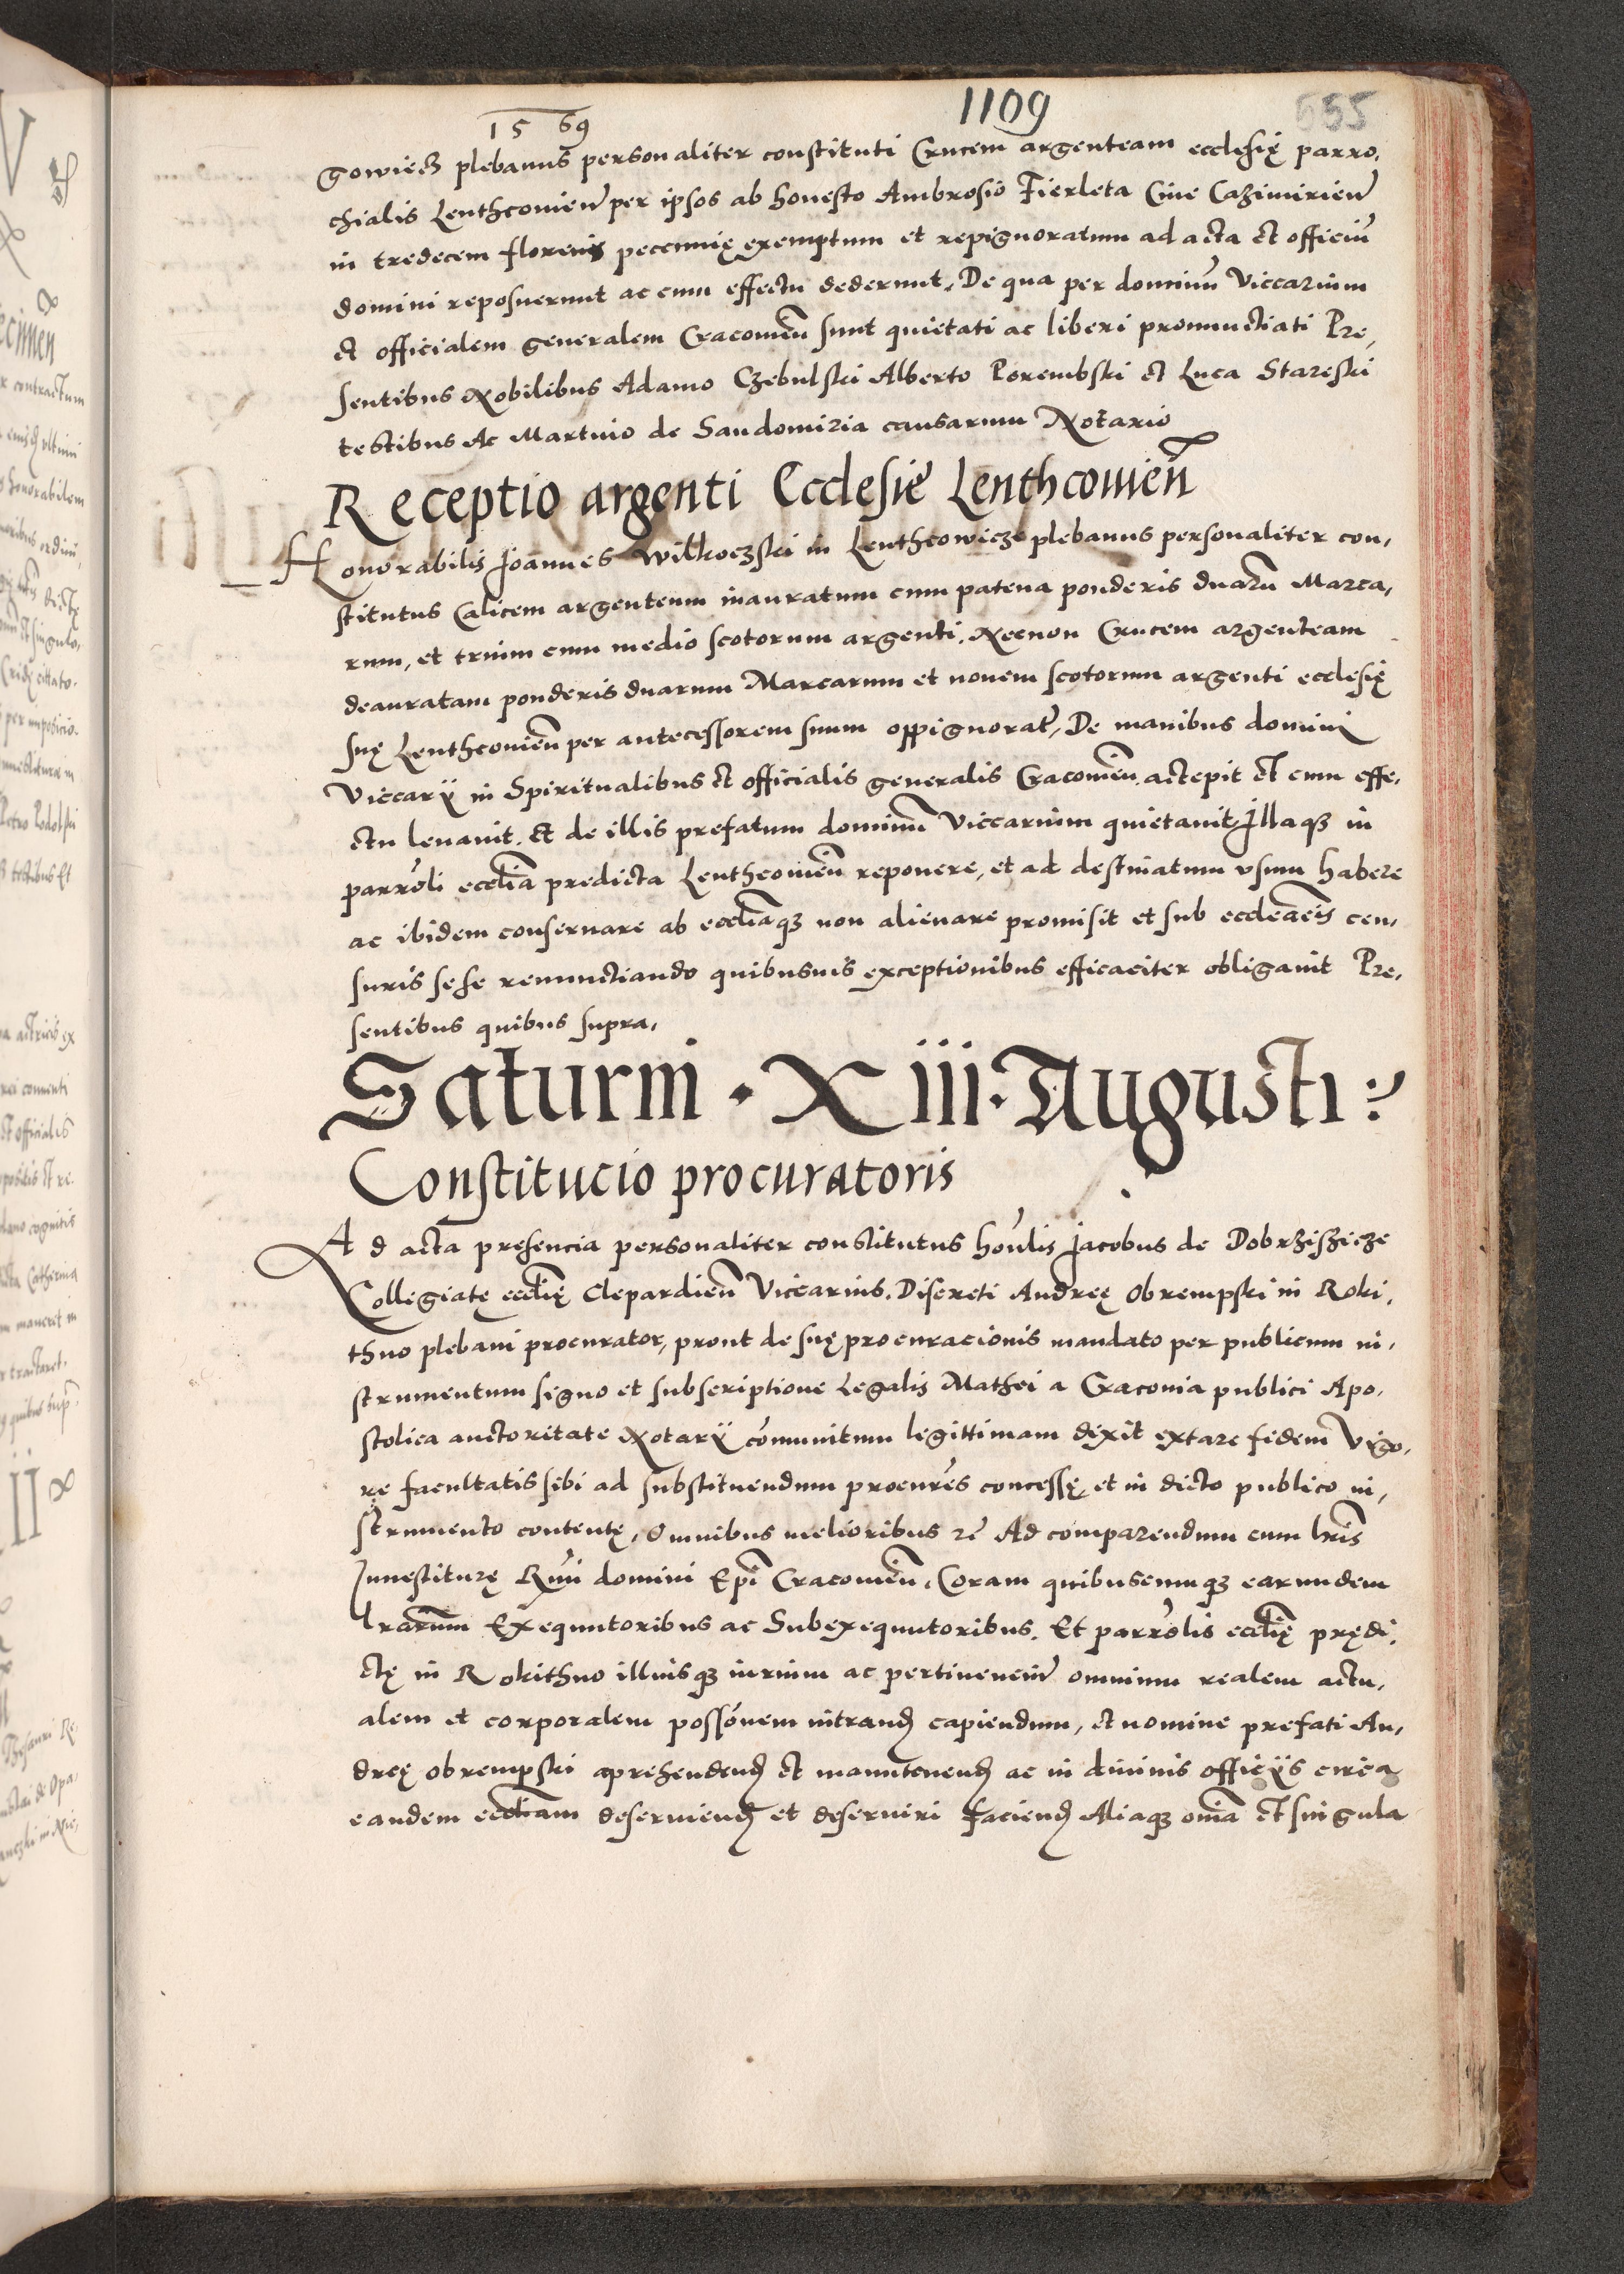 1569
1109
655
gowicz plebanus personaliter constituti Crucem argenteam ecclesię parro,
chialis Lenthcovien̄ per ipsos ab honesto Ambrosio Fierleta Cive Cazimirien̄
in tredecem florenis peccunię exemptum et repignoratum ad acta et officiū
domini reposuerunt ac cum effectu dederunt, De qua per dominū Viccarium
et officialem generalem Cracovien̄ sunt quietati ac liberi pronunctiati Pre,
sentibus Nobilibus Adamo Czebulski Alberto Porembski et Luca Stareski
testibus Ac Martino de Sandomiria causarum Notario
Receptio argenti Ecclesie Lenthcovien̄
Honorabilis Joannes Wilkoczski in Lenthcowicze plebanus personaliter con,
stitutus Calicem argenteum inauratum cum patena ponderis duarū Marca,
rum, et trium cum medio scotorum argenti, Necnon Crucem argenteam
deauratam ponderis duarum Marcarum et novem scotorum argenti ecclesię
suę Lenthcovien̄ per antecessorem suum oppignorat̄, De manibus domini
Viccarij in Spiritualibus et officialis generalis Cracovien̄ actepit et cum effe,
ctu levavit, et de illis prefatum dominū Viccarium quietavit, Illaqȝ in
parrōli ecclīa predicta Lenthcovien̄ reponere, et ad destinatum usum habere
ac ibidem conservare ab ecclīaqȝ non alienare promisit et sub eccleācis cen,
suris sese renunctiando quibusvis exceptionibus efficaciter obligavit Pre,
sentibus quibus supra,
Saturni · Xiii · Augusti :
Constitucio procuratoris
Ad acta presencia personaliter constitutus honūlis Jacobus de Dobrziszicze
Collegiatę ecclīę Clepardien̄ Viccarius, Discreti Andreę Obrempski in Roki,
thno plebani procurator, prout de suę procuracionis mandato per publicum in,
strumentum signo et subscriptione Legalis Mathei a Cracovia publici Apo,
stolica auctoritate Notarij cōmunitum legittimam dixit extare fidem Vigo,
re facultatis sibi ad substituendum procurēs concessę et in dicto publico in,
strumento contentę, Omnibus melioribus rē Ad comparendum cum lrīs
Investiturę Rmī domini Epī Cracovien̄, Coram quibuscumqȝ earundem
lrarūm Exequutoribus ac Subexequutoribus, Et parrōlis ecclīę prędi,
ctę in Rokithno illiusqȝ iurium ac pertinencin̄ omnium realem actu,
alem et corporalem possōnem intrand̄ capiendum, et nomine prefati An,
dreę Obrempski aprehendend̄ et manutenend̄ ac in divinis officijs circa
eandem ecclīam deserviend̄ et deserviri faciend̄ Aliaqȝ omīa et singula